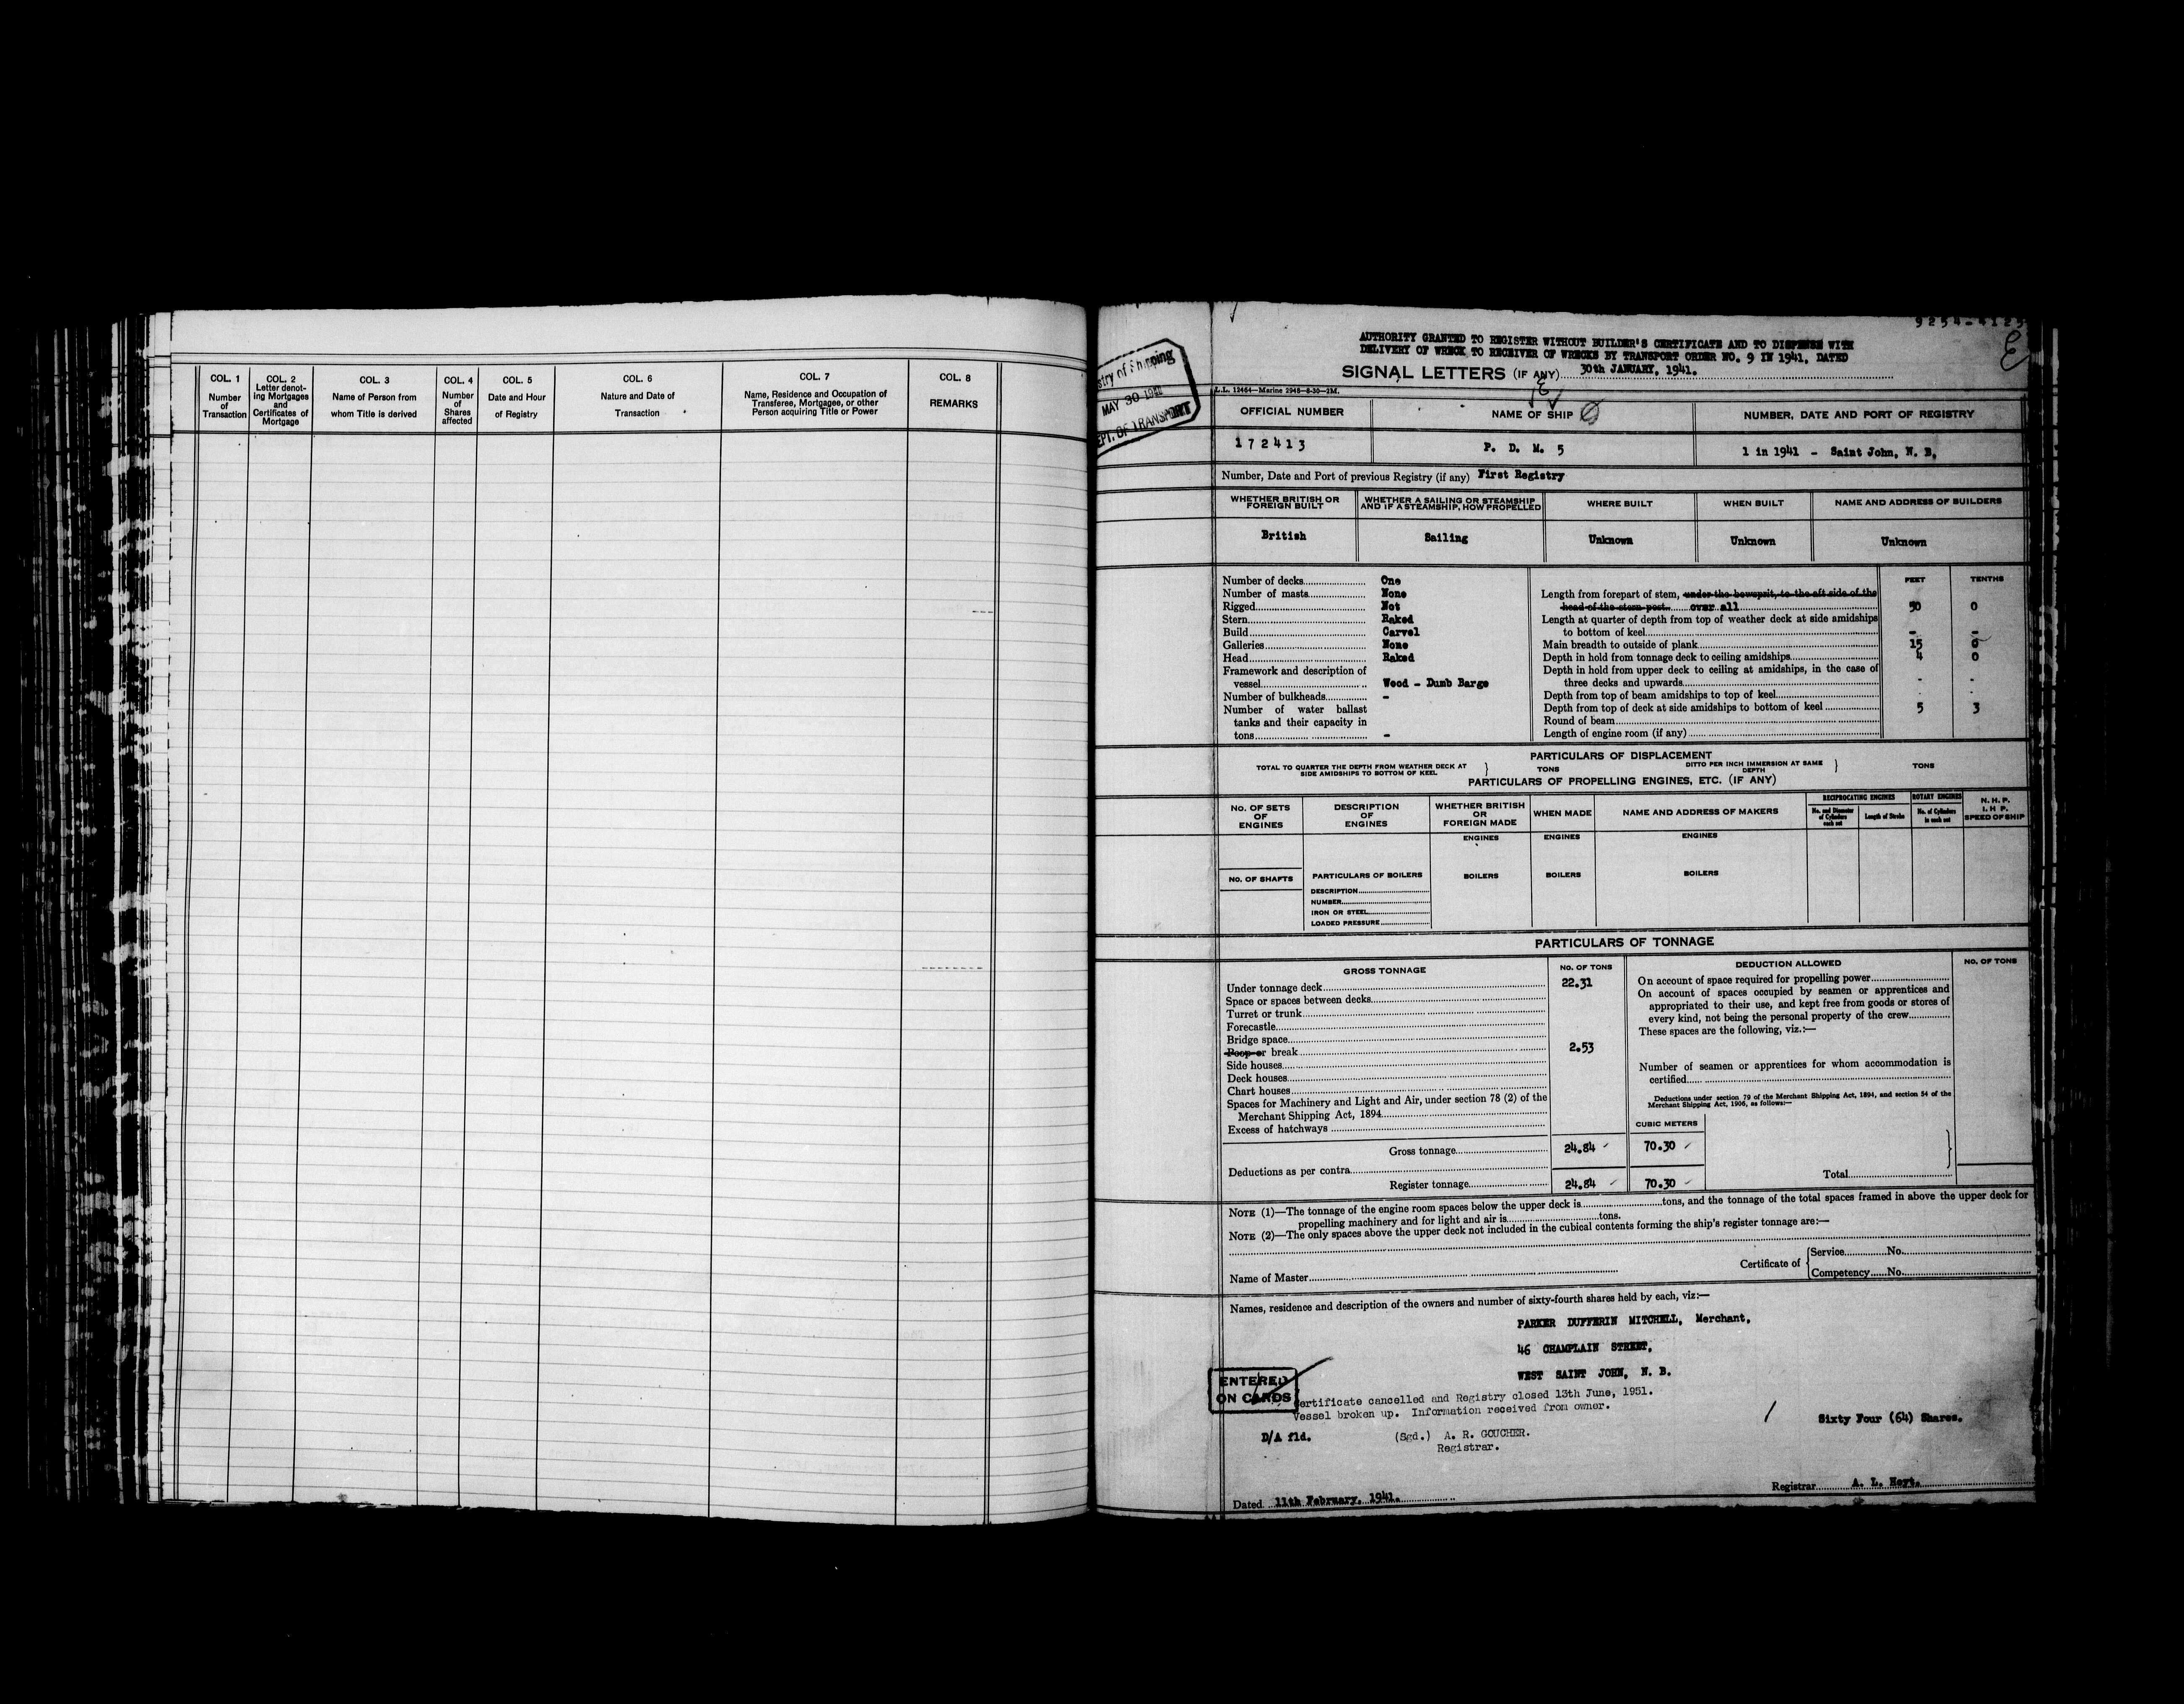 COL. 1
Number
of
Transaction
COL. 2
Letter denot-
ing Mortgages
and
Certificates of
Mortgage
COL. 3
Name of Person from
whom Title is derived
COL. 4
Number
of
Shares
affected
COL. 5
Date and Hour
of Registry
COL. 6
Nature and Date of
Transaction
COL. 7
Name, Residence and Occupation of
Transferee, Mortgagee, or other
Person acquiring Title or Power
COL. 8
REMARKS
stry of Shipping
MAY 30 1941
EPT. OF TRANSPORT
AUTHORITY GRANTED TO REGISTER WITHOUT BUILDER'S CERTIFICATE AND TO DISPENSE WITH
DELIVERY OF WRECK TO RECEIVER OF WRECKS BY TRANSPORT ORDER NO. 9 IN 1941. DATED
SIGNAL LETTERS (IF ANY) 30th JANUARY, 1941.
L.L. 12464—Marine 2948—8-30—2M.
OFFICIAL NUMBER
NAME OF SHIP
NUMBER, DATE AND PORT OF REGISTRY
172413
P. D. M. 5
1 in 1941 - Saint John, N. B.
Number, Date and Port of previous Registry (if any) First Registry
WHETHER BRITISH OR
FOREIGN BUILT
WHETHER A SAILING OR STEAMSHIP
AND IF A STEAMSHIP, HOW PROPELLED
WHERE BUILT
WHEN BUILT
NAME AND ADDRESS OF BUILDERS
British
Sailing
Unknown
Unknown
Unknown
Number of decks One
Number of masts None
Rigged Not
Stern Raked
Build Carvel
Galleries None
Head Raked
Framework and description of
vessel Wood - Dumb Barge
Number of bulkheads -
Number of water ballast
tanks and their capacity in
tons -
FEET TENTHS
Length from forepart of stem, under the bowsprit, to the aft side of the
head of the stern post over all 50 0
Length at quarter of depth from top of weather deck at side amidships
to bottom of keel - -
Main breadth to outside of plank 15 0
Depth in hold from tonnage deck to ceiling amidships 4 0
Depth in hold from upper deck to ceiling at amidships, in the case of
three decks and upwards - -
Depth from top of beam amidships to top of keel
Depth from top of deck at side amidships to bottom of keel 5 3
Round of beam
Length of engine room (if any)
PARTICULARS OF DISPLACEMENT
TOTAL TO QUARTER THE DEPTH FROM WEATHER DECK AT
SIDE AMIDSHIPS TO BOTTOM OF KEEL
TONS
DITTO PER INCH IMMERSION AT SAME
DEPTH
TONS
PARTICULARS OF PROPELLING ENGINES, ETC. (IF ANY)
NO. OF SETS
OF
ENGINES
DESCRIPTION
OF
ENGINES
WHETHER BRITISH
OR
FOREIGN MADE
WHEN MADE
NAME AND ADDRESS OF MAKERS
RECIPROCATING ENGINES
No. and Diameter
of Cylinders
each set
Length of Stroke
ROTARY ENGINES
No. of Cylinders
in each set
N. H. P.
I. H P.
SPEED OF SHIP
ENGINES
ENGINES
ENGINES
NO. OF SHAFTS
PARTICULARS OF BOILERS
BOILERS
BOILERS
BOILERS
DESCRIPTION
NUMBER
IRON OR STEEL
LOADED PRESSURE
PARTICULARS OF TONNAGE
GROSS TONNAGE
NO. OF TONS
DEDUCTION ALLOWED
NO. OF TONS
Under tonnage deck 22.31
Space or spaces between decks
Turret or trunk
Forecastle
Bridge space
Poop or break 2.53
Side houses
Deck houses
Chart houses
Spaces for Machinery and Light and Air, under section 78 (2) of the
Merchant Shipping Act, 1894
Excess of hatchways
Gross tonnage 24.84
Deductions as per contra
Register tonnage 24.84
On account of space required for propelling power
On account of spaces occupied by seamen or apprentices and
appropriated to their use, and kept free from goods or stores of
every kind, not being the personal property of the crew
These spaces are the following, viz.:—
Number of seamen or apprentices for whom accommodation is
certified
Deductions under section 79 of the Merchant Shipping Act, 1894, and section 54 of the
Merchant Shipping Act, 1906, as follows:—
CUBIC METERS
70.30
70.30
Total
NOTE (1)—The tonnage of the engine room spaces below the upper deck is tons, and the tonnage of the total spaces framed in above the upper deck for
propelling machinery and for light and air is tons.
NOTE (2)—The only spaces above the upper deck not included in the cubical contents forming the ship's register tonnage are:—
Name of Master
Certificate of
Service No.
Competency No.
Names, residence and description of the owners and number of sixty-fourth shares held by each, viz:—
PARKER DUFFERIN MITCHELL, Merchant,
46 CHAMPLAIN STREET,
WEST SAINT JOHN, N. B.
ENTERED
ON CARDS
ertificate cancelled and Registry closed 13th June, 1951.
Vessel broken up. Information received from owner.
Sixty Four (64) Shares.
D/A fld.
(Sgd.) A. R. GOUCHER.
Registrar.
Dated 11th February, 1941.
Registrar A. L. Hoyt.